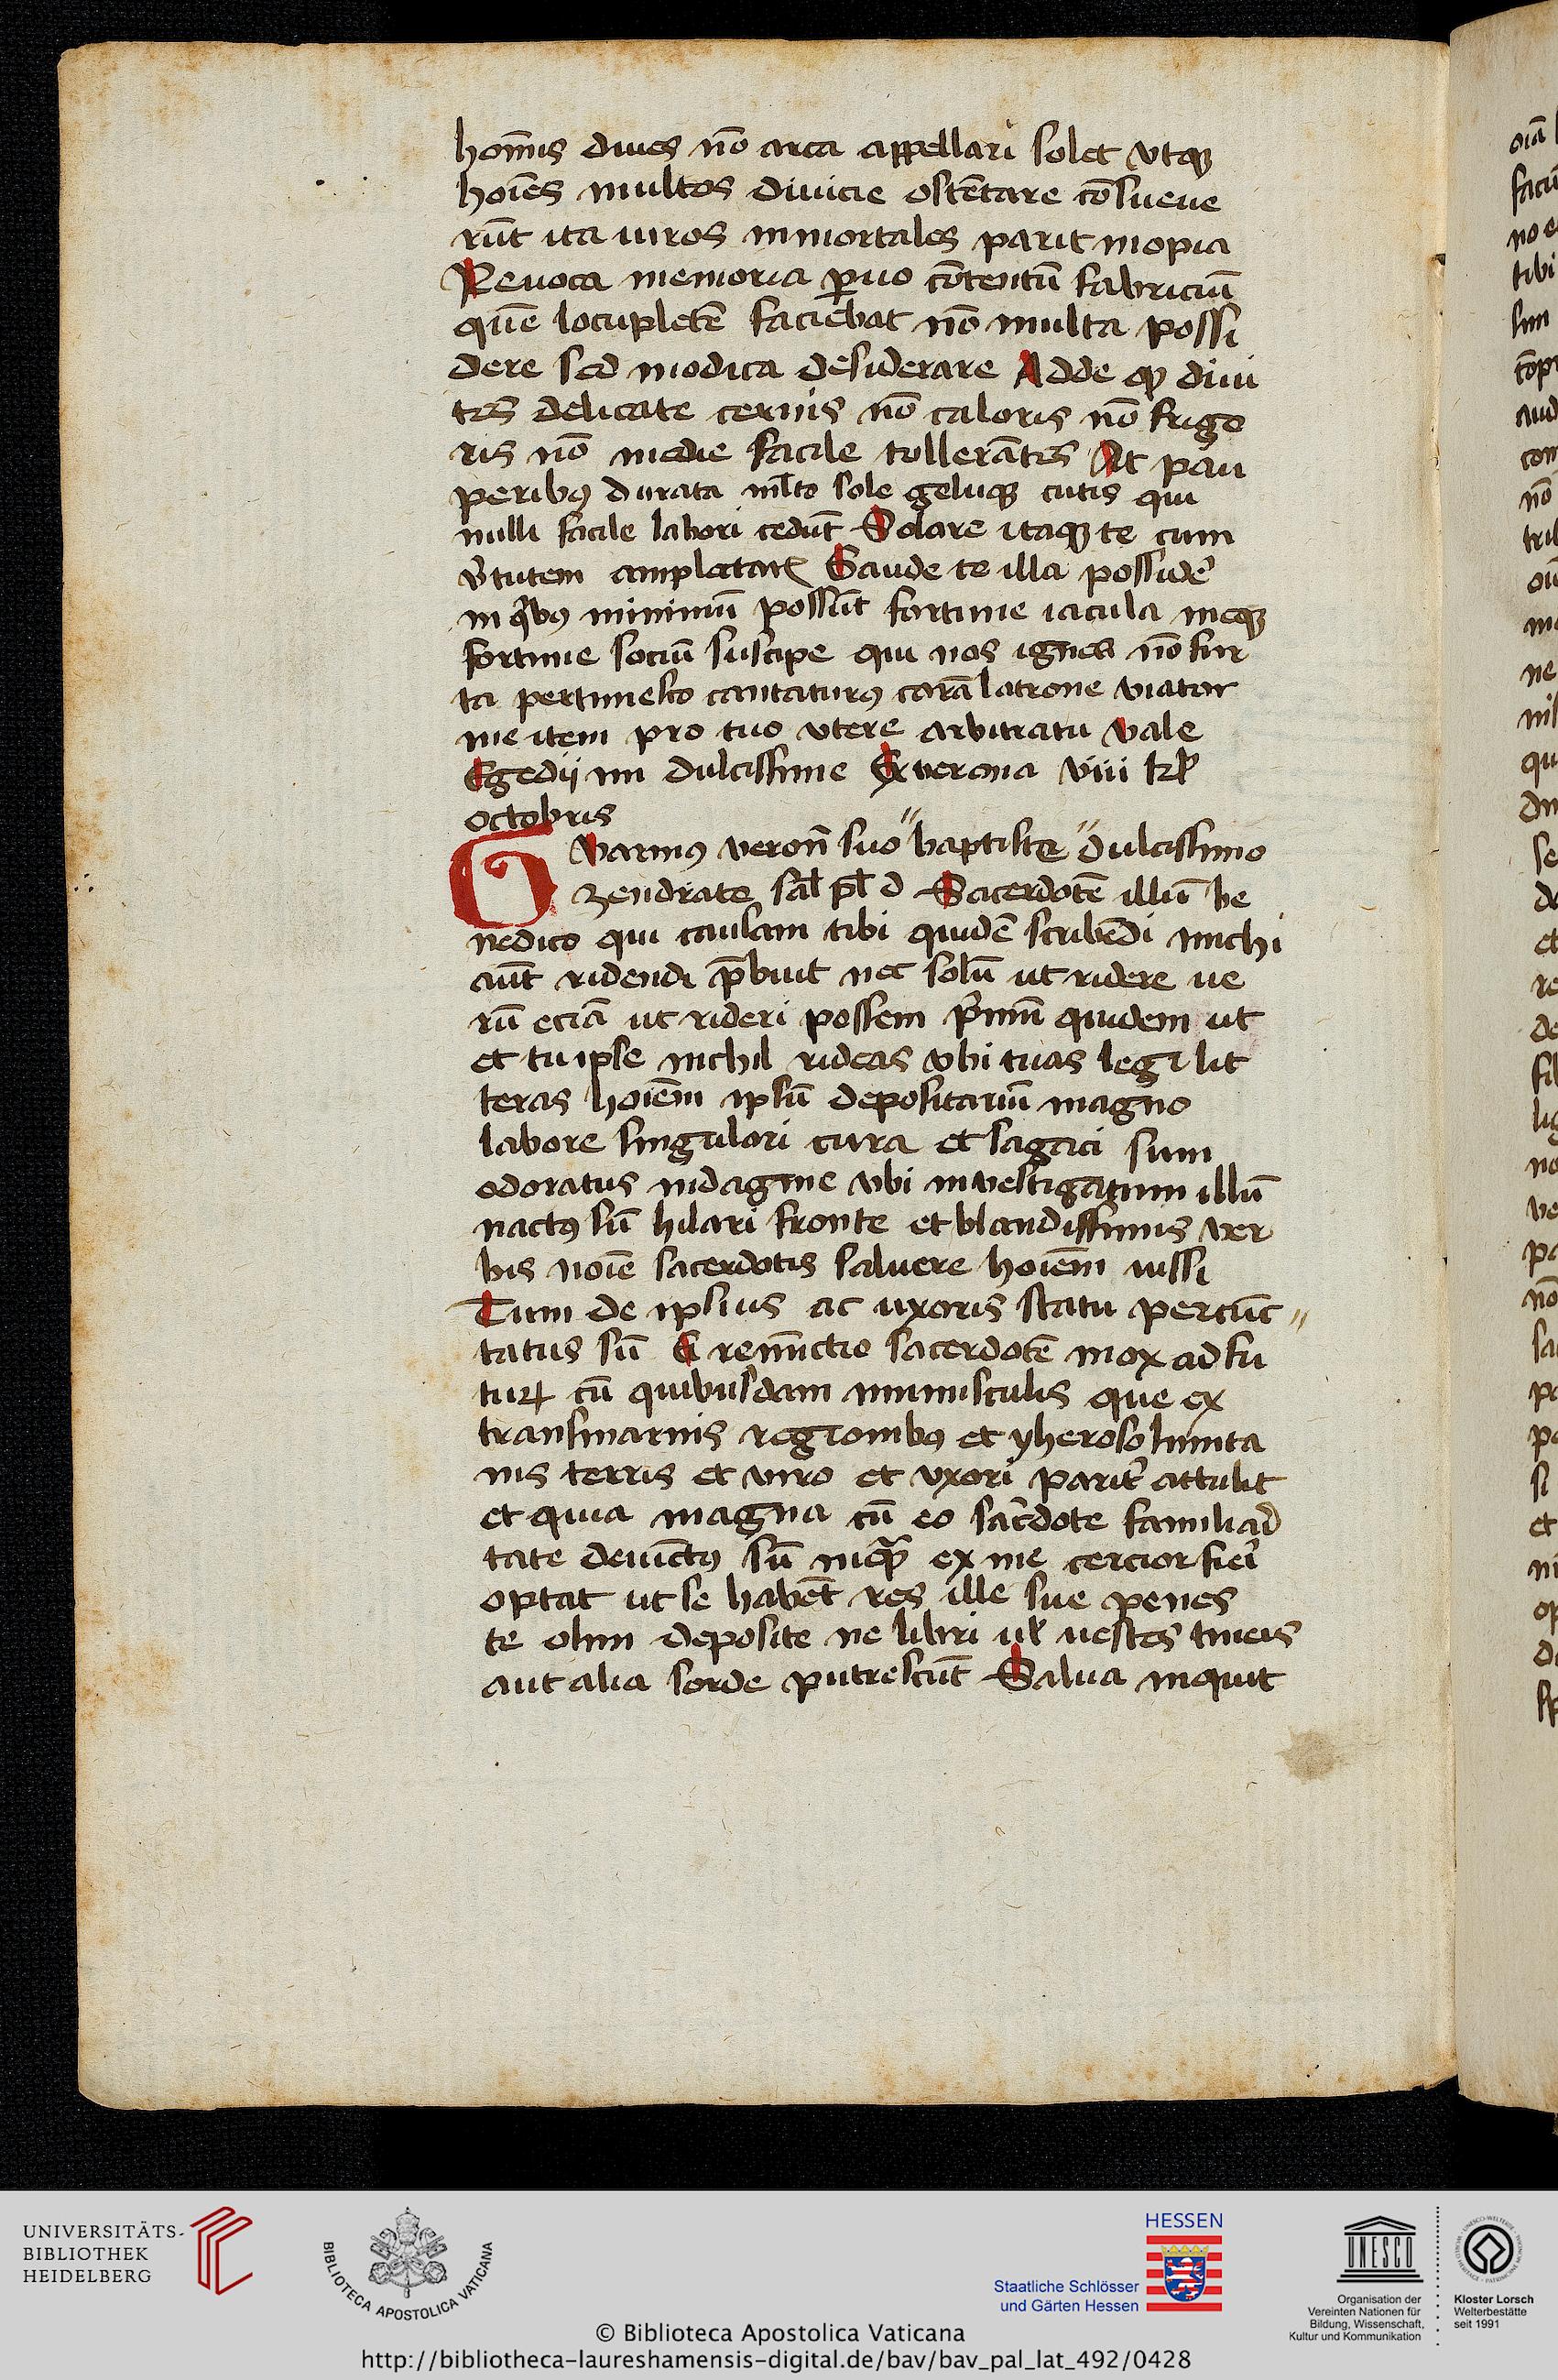 hom̄is diues nō arca appellari solet vtqꝫ
hoīes multos diuicie ostētare cōsueue
rūt ita uiros inmortales parit inopia
Reuoca memoria ꝑuo cōtentū fabriciū
quē locupletē faciebat nō multa possi
dere sed modica desiderare Adde qꝫ diui
tes delicate cernis nō caloris nō frigo
ris nō inedie facile tollerātes At pau
peribꝰ durata ml̄to sole geluqꝫ cutis qui
nulli facile labori cedūt Solare itaqꝫ te cum
v̓tutem amplectatꝭ Gaude te illa posside᷑
in qͥbꝰ minimū possūt fortune iacula meqꝫ
fortune sociū suscipe qui nos ignes nō fur
ta pertimesco cantaturꝰ corā latrone viator
me item pro tuo vtere arbitratu vale
Egedij mi dulcissime Ex verona viii kl̄
octobris
Guarinꝰ veron̄ suo "baptiste" dulcissimo
zendrate sal̄ pl̄ d Sacerdotē illū be
nedico qui causam tibi quidē scribēdi michi
aūt ridendi p̄buit nec solū ut ridere ue
rū eciā ut rideri possem pͥmū quidem ut
et tu ipse nichil rideas vbi tuas legi lit
teras hoīem ipsū depositariū magno
labore singulari cura et sagaci sum
odoratus indagine vbi investigatum illū
nactꝰ sū hilari fronte et blandissimis ver
bis noīe sacerdotis saluere hoīem iussi
Tum de ipsius ac uxoris statu percūc"
tatus sū E renūctio sacerdotē mox adfu
tuꝝ cū quibusdam munusculis que ex
transmarinis regionibꝰ et yherosolimita
nis terris et viro et vxori parit᷑ attulit
et quia magna cū eo sac᷑dote familiari
tate deuīctꝰ sū inqͣ ex me cercior fie᷑i
optat ut se habēt res ille sue penes
te olim deposite ne libri ul̄ uestes tineis
aut alia sorde putrescūt Salua inquit
oīa
facii
no e
tibi
sim
aud
com
nō
ne
nis
qu
se
de
et
re
de
no
ve
pa
nō
sa
et
UNIVERSITÄTS-
BIBLIOTHEK
HEIDELBERG
BIBLIOTECA APOSTOLICA VATICANA
HESSEN
Staatliche Schlösser
und Gärten Hessen
UNESCO
Organisation der
Vereinten Nationen für
Bildung, Wissenschaft,
Kultur und Kommunikation
Kloster Lorsch
Welterbestätte
seit 1991
© Biblioteca Apostolica Vaticana
http://bibliotheca-laureshamensis-digital.de/bav/bav_pal_lat_492/0428